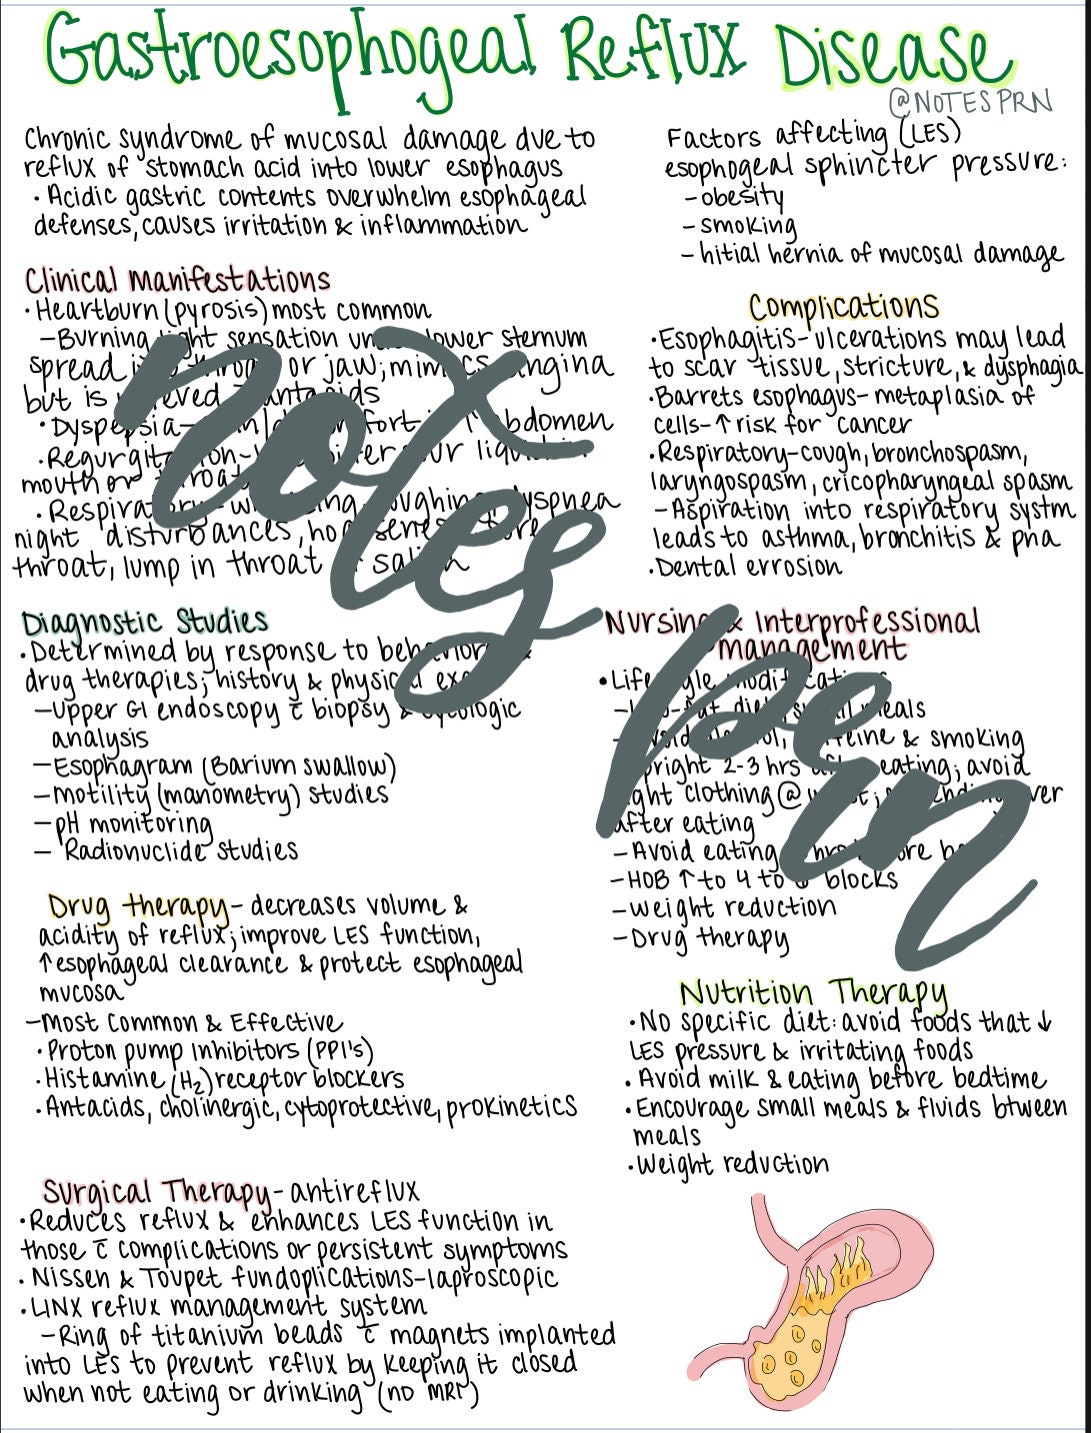 Gastroesophogeal Reflux Disease
@NOTESPRN
Chronic syndrome of mucosal damage due to
reflux of stomach acid into lower esophagus
· Acidic gastric contents overwhelm esophageal
defenses, causes irritation & inflammation
Clinical Manifestations
· Heartburn (pyrosis) most common
- Burning, sensation lower sternum
spread or jaw; angina
but is
· Dyspepsia- abdomen
· Regurgitation-
mouth or throat
· Respiratory- coughing, dyspnea
night disturbances,
throat, lump in throat
Diagnostic Studies
· Determined by response to
drug therapies; history & physical
- Upper GI endoscopy c̄ biopsy &
analysis
- Esophagram (Barium swallow)
- Motility (manometry) studies
- pH monitoring
- Radionuclide studies
Drug therapy - decreases volume &
acidity of reflux; improve LES function,
↑ esophageal clearance & protect esophageal
mucosa
- Most Common & Effective
· Proton pump inhibitors (PPI's)
· Histamine (H₂) receptor blockers
· Antacids, cholinergic, cytoprotective, prokinetics
Surgical Therapy - antireflux
· Reduces reflux & enhances LES function in
those c̄ complications or persistent symptoms
· Nissen & Toupet fundoplications-laproscopic
· LINX reflux management system
- Ring of titanium beads c̄ magnets implanted
into LES to prevent reflux by keeping it closed
when not eating or drinking (no MRI)
Factors affecting (LES)
esophogeal sphincter pressure:
- obesity
- smoking
- hitial hernia of mucosal damage
Complications
· Esophagitis- ulcerations may lead
to scar tissue, stricture, & dysphagia
· Barrets esophagus- metaplasia of
cells- ↑ risk for cancer
· Respiratory-cough, bronchospasm,
laryngospasm, cricopharyngeal spasm
- Aspiration into respiratory systm
leads to asthma, bronchitis & pna
· Dental errosion
Nursing & Interprofessional
management
·
meals
& smoking
2-3 hrs eating; avoid
clothing @
after eating
- Avoid eating
- HOB ↑ to 4 to blocks
- weight reduction
- Drug therapy
Nutrition Therapy
· No specific diet: avoid foods that ↓
LES pressure & irritating foods
· Avoid milk & eating before bedtime
· Encourage small meals & fluids btween
meals
· Weight reduction
notes
prn